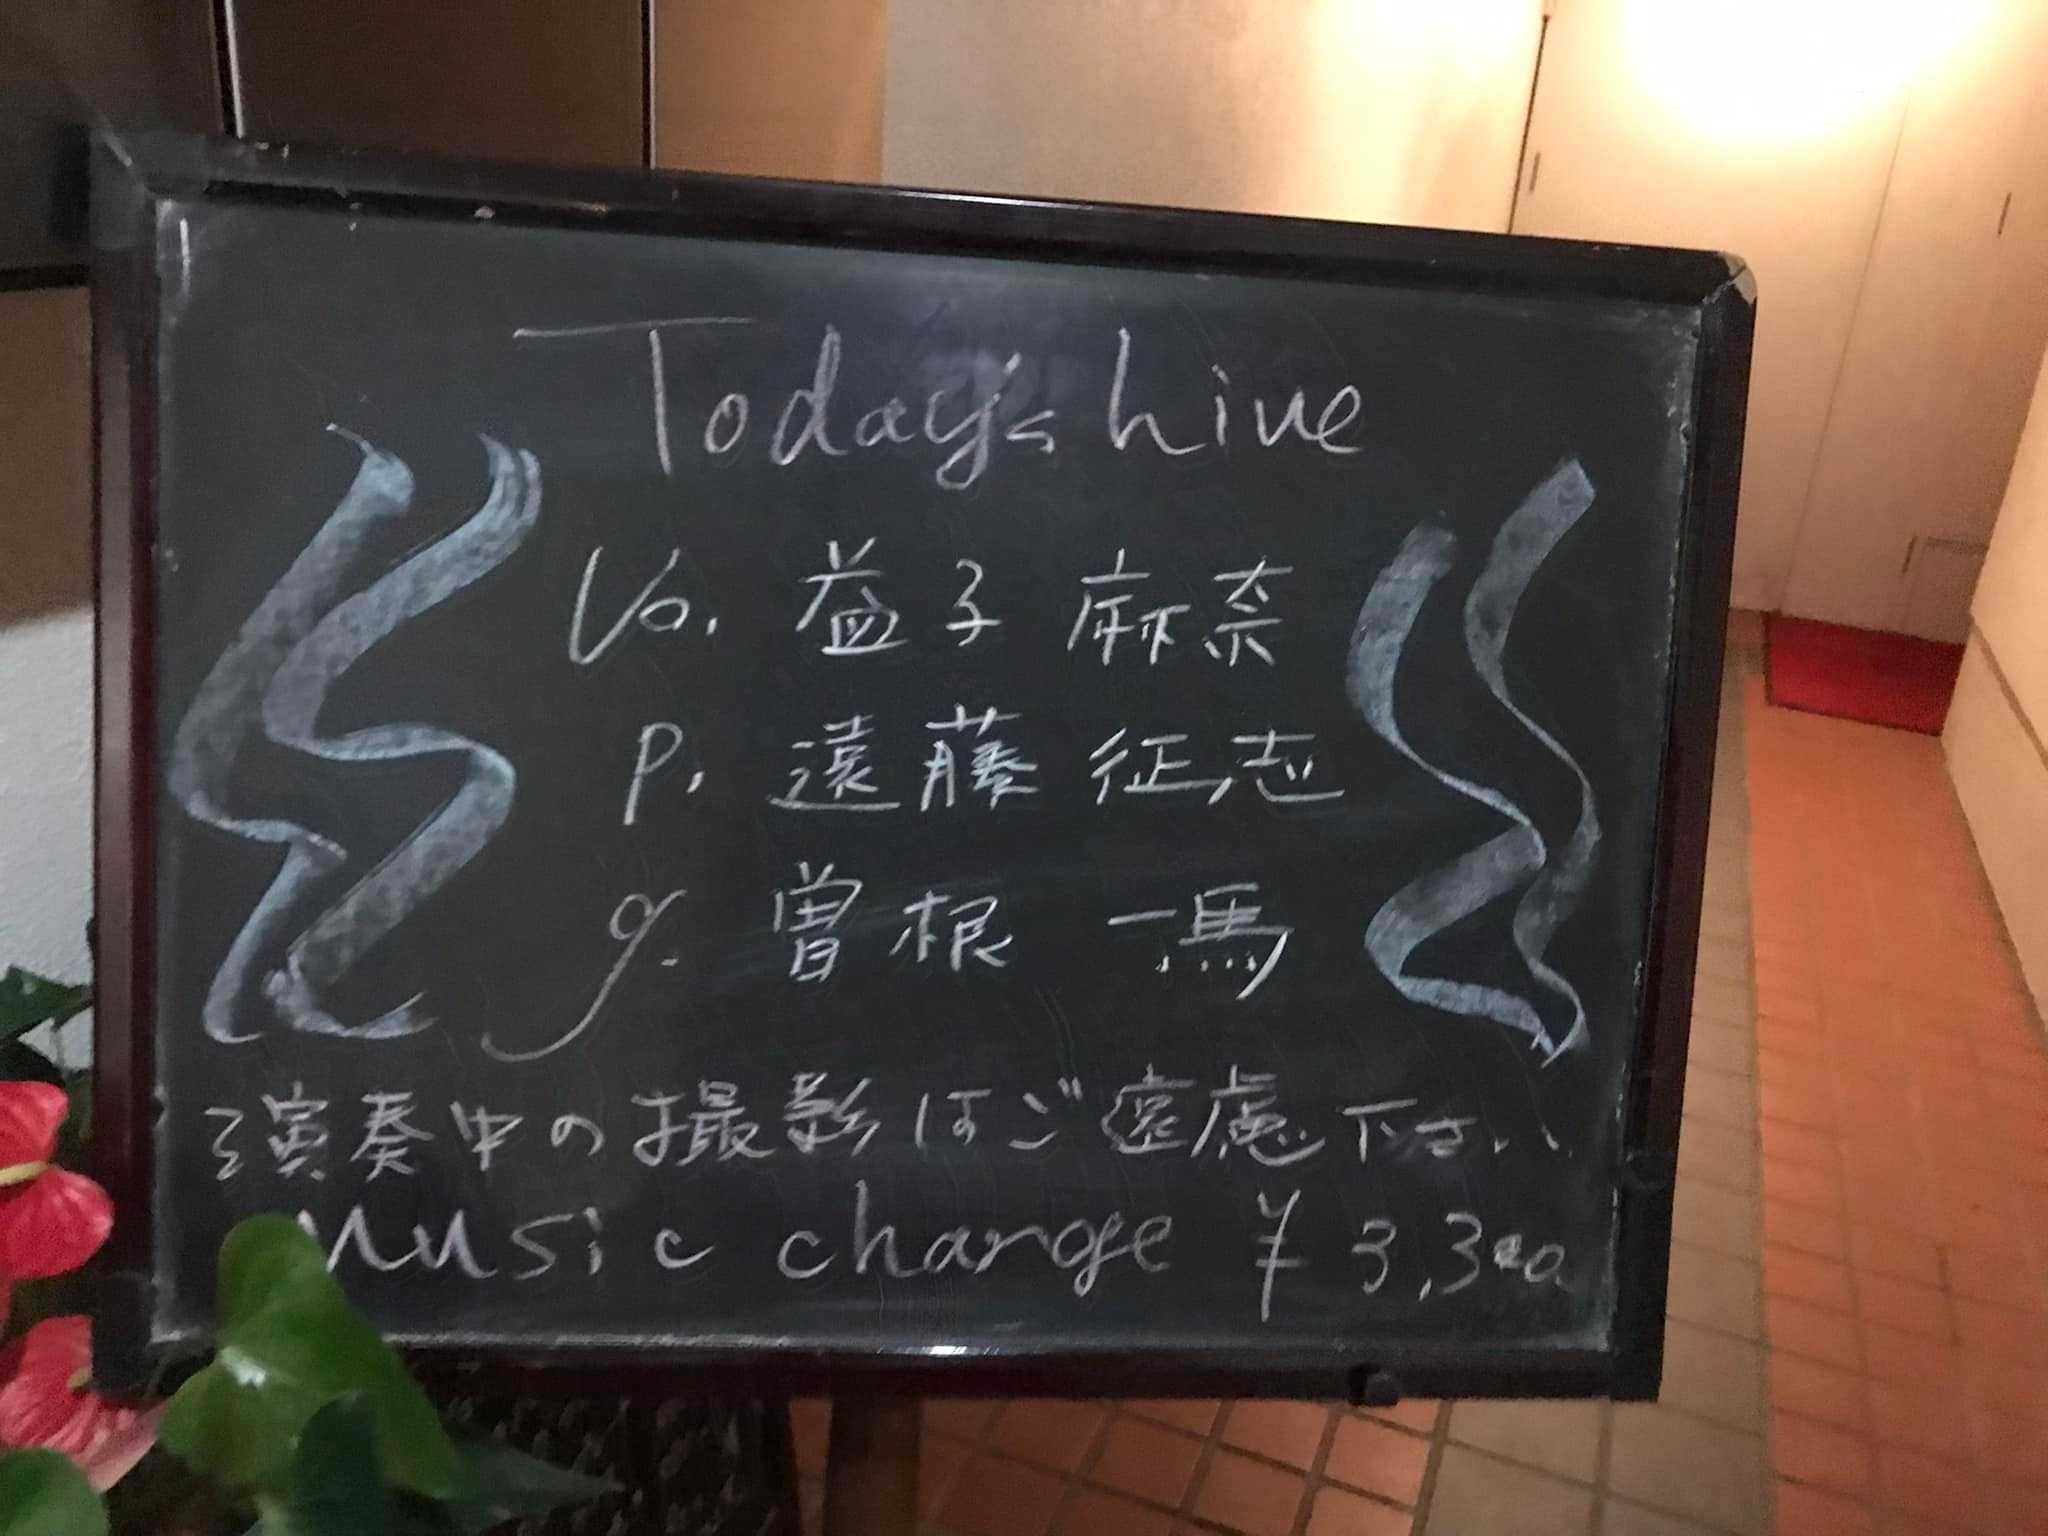 Today's Live
Vo. 益子 麻奈
P. 遠藤 征志
g. 曽根 一馬
演奏中の撮影はご遠慮下さい
Music change ¥3,300